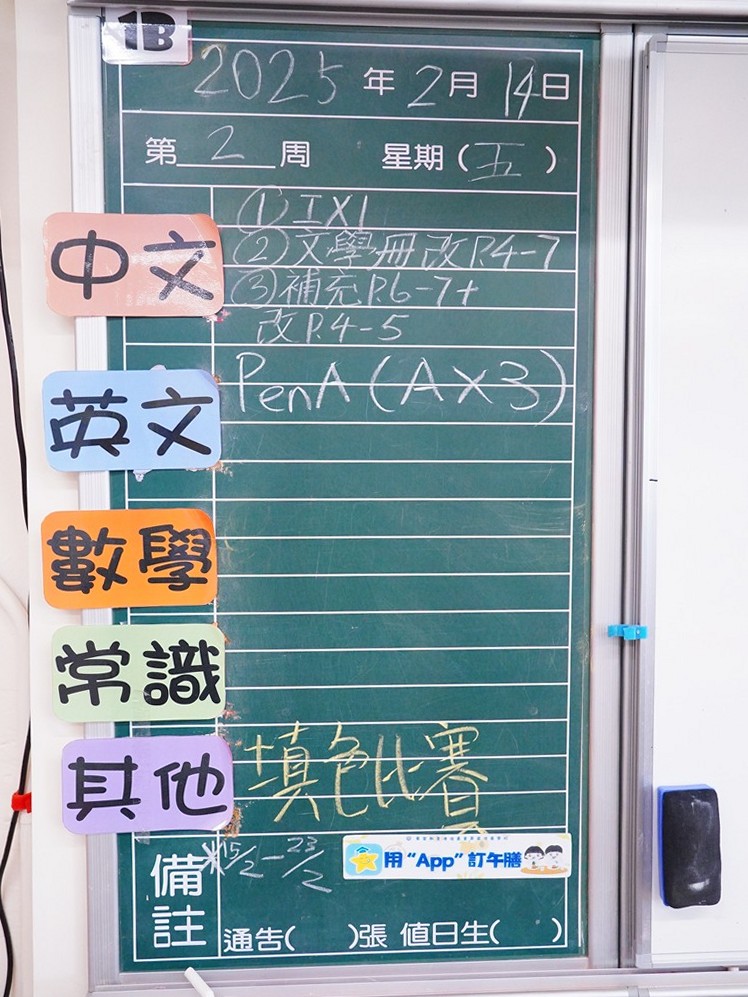 1B
2025年2月14日
第2周 星期(五)
中文
① IX1
② 文學冊改P.4-7
③ 補充P.6-7+
改P.4-5
英文
PenA (A×3)
數學
常識
其他
填色比賽
備註
*15/2-23/2
用“App”訂午膳
通告( )張 值日生( )